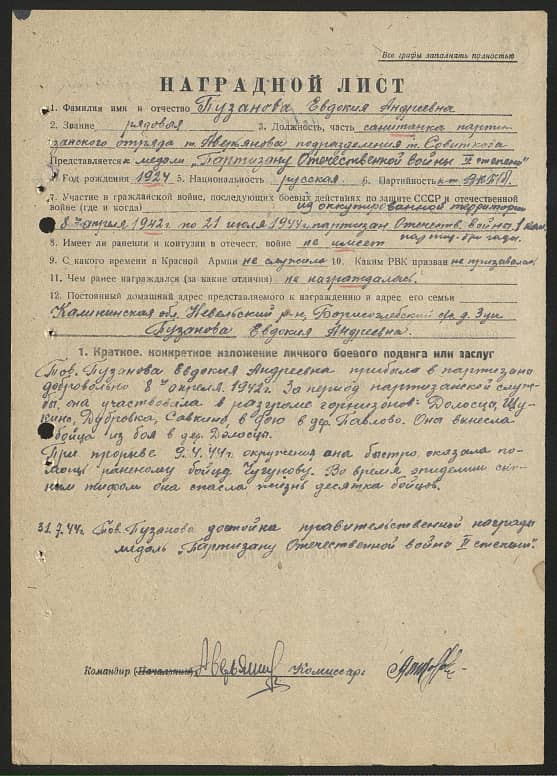 Все графы заполнять полностью
НАГРАДНОЙ ЛИСТ
1. Фамилия имя и отчество Пузанова Евдокия Андреевна
2. Звание рядовая 3. Должность, часть санитарка парти-
занского отряда т. Аверьянова подразделения т.
Представляется к медаль „Партизану Отечественной войны II степени"
4. Год рождения 1924 5. Национальность русская 6. Партийность к-т ВКП/б/.
7. Участие в гражданской войне, последующих боевых действиях по защите СССР и отечественной
войне (где и когда) на оккупированной территории
8го апреля 1942 г. по 21 июля 1944 г. партизан Отечеств. война 1
партиз. бригады.
8. Имеет ли ранения и контузии в отечест. войне не имеет
9. С какого времени в Красной Армии не служила 10. Каким РВК призван не призывалась
11. Чем ранее награждался (за какие отличия) не награждалась.
12. Постоянный домашний адрес представляемого к награждению и адрес его семьи
Калининская обл. Невельский р-н, Борисоглебский с/с д.
Пузанова Евдокия Андреевна.
1. Краткое, конкретное изложение личного боевого подвига или заслуг
Тов. Пузанова Евдокия Андреевна прибыла в партизаны
добровольно 8го апреля 1942 г. За период партизанской служ-
бы, она участвовала в разгроме гарнизонов: Долосца, Щу-
кино, Дубровка, Савкино, в бою в дер. Павлово. Она вынесла
бойца из боя в дер. Долосца.
При прорыве 9.4.44 г. окружения она быстро оказала по-
мощь раненому бойцу Чугунову. Во время эпидемии сып-
ным тифом она спасла жизнь десятка бойцов.
31.7.44 г. Тов. Пузанова достойна правительственной награды
медаль „Партизану Отечественной война II степени".
Командир (Начальник) Комиссар